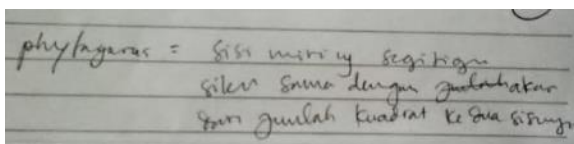 phytagoras = sisi miring segitiga
siku sama dengan akar
dari jumlah kuadrat kedua sisinya